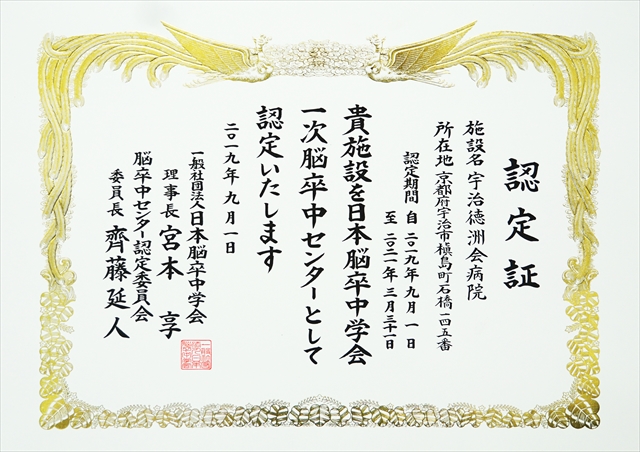 認定証
施設名 宇治徳洲会病院
所在地 京都府宇治市槇島町石橋一四五番
認定期間 自 二〇一九年 九月 一日
至 二〇二一年 三月三十一日
貴施設を日本脳卒中学会
一次脳卒中センターとして
認定いたします
二〇一九年 九月一日
一般社団法人日本脳卒中学会
理事長 宮本 享
脳卒中センター認定委員会
委員長 齊藤延人